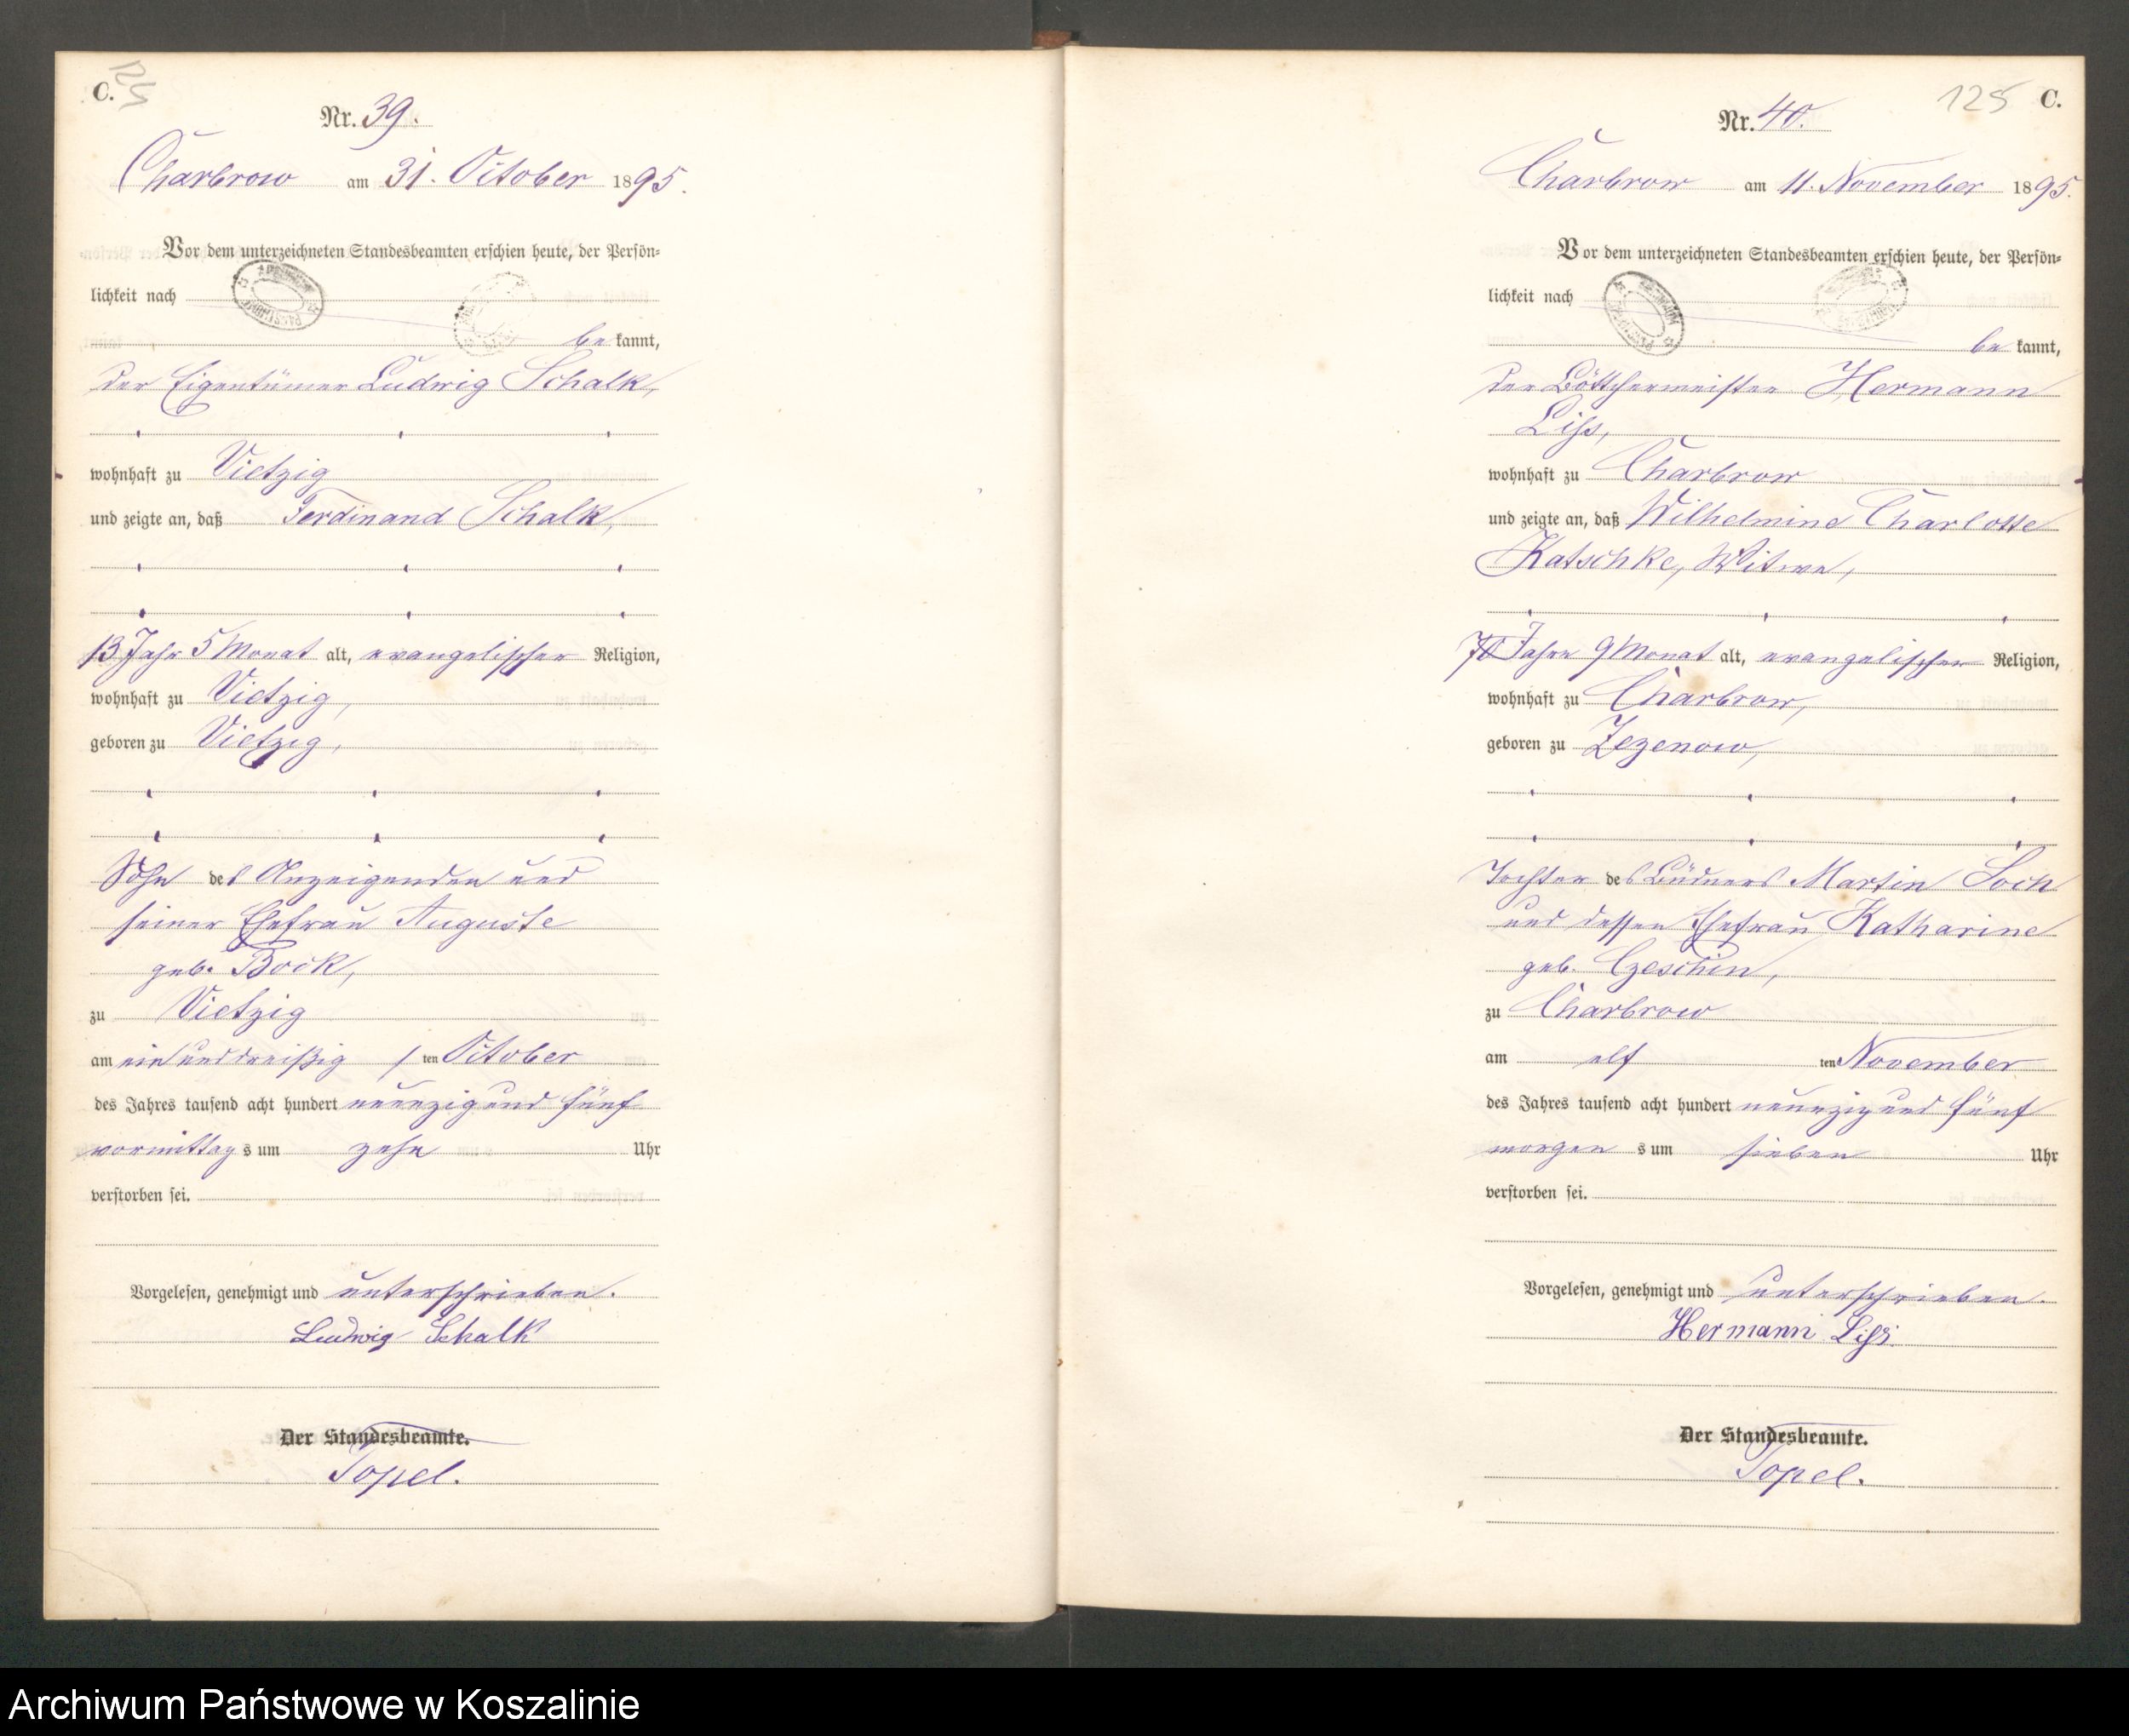 C.
Nr. 39.
Charbrow am 31. October 1895.
Vor dem unterzeichneten Standesbeamten erschien heute, der Persön-
lichkeit nach
be kannt,
der Eigentümer Ludwig Schalk,
wohnhaft zu Vietzig
und zeigte an, daß Ferdinand Schalk,
13 Jahr 5 Monat alt, evangelischer Religion,
wohnhaft zu Vietzig,
geboren zu Vietzig,
Sohn des Anzeigenden und
seiner Ehefrau Auguste
geb. Bock,
zu Vietzig
am ein und dreißig ten October
des Jahres tausend acht hundert neunzig und fünf
vormittag s um zehn Uhr
verstorben sei.
Vorgelesen, genehmigt und unterschrieben.
Ludwig Schalk
Der Standesbeamte.
Topel.
125 C.
Nr. 40.
Charbrow am 11. November 1895.
Vor dem unterzeichneten Standesbeamten erschien heute, der Persön-
lichkeit nach
be kannt,
der Böttchermeister Hermann
Liss,
wohnhaft zu Charbrow
und zeigte an, daß Wilhelmine Charlotte
Katschke, Witwe,
70 Jahre 9 Monat alt, evangelischer Religion,
wohnhaft zu Charbrow,
geboren zu Zezenow,
Tochter des Büdners Martin Sock
und dessen Ehefrau Katharine
geb. Czeschin,
zu Charbrow
am elf ten November
des Jahres tausend acht hundert neunzig und fünf
morgen s um sieben Uhr
verstorben sei.
Vorgelesen, genehmigt und unterschrieben.
Hermann Liss.
Der Standesbeamte.
Topel.
Archiwum Państwowe w Koszalinie